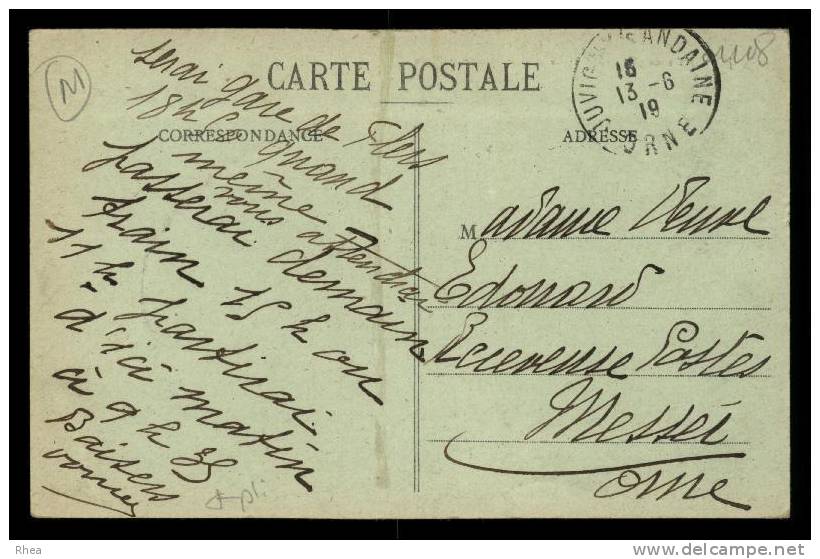 M
4108
CARTE POSTALE
CORRESPONDANCE
ADRESSE
JUVIGNY S ANDAINE
16
13 -6
19
ORNE
serai gare de Flers
18h quand
même vous attendrai
passerai demain
train 15 h ou
11 h partirai
d'ici matin
à 9 h 35
Baisers
Madame Veuve
Edouard
Receveuse Postes
Messei
Orne
pli
Rhea
www.delcampe.net